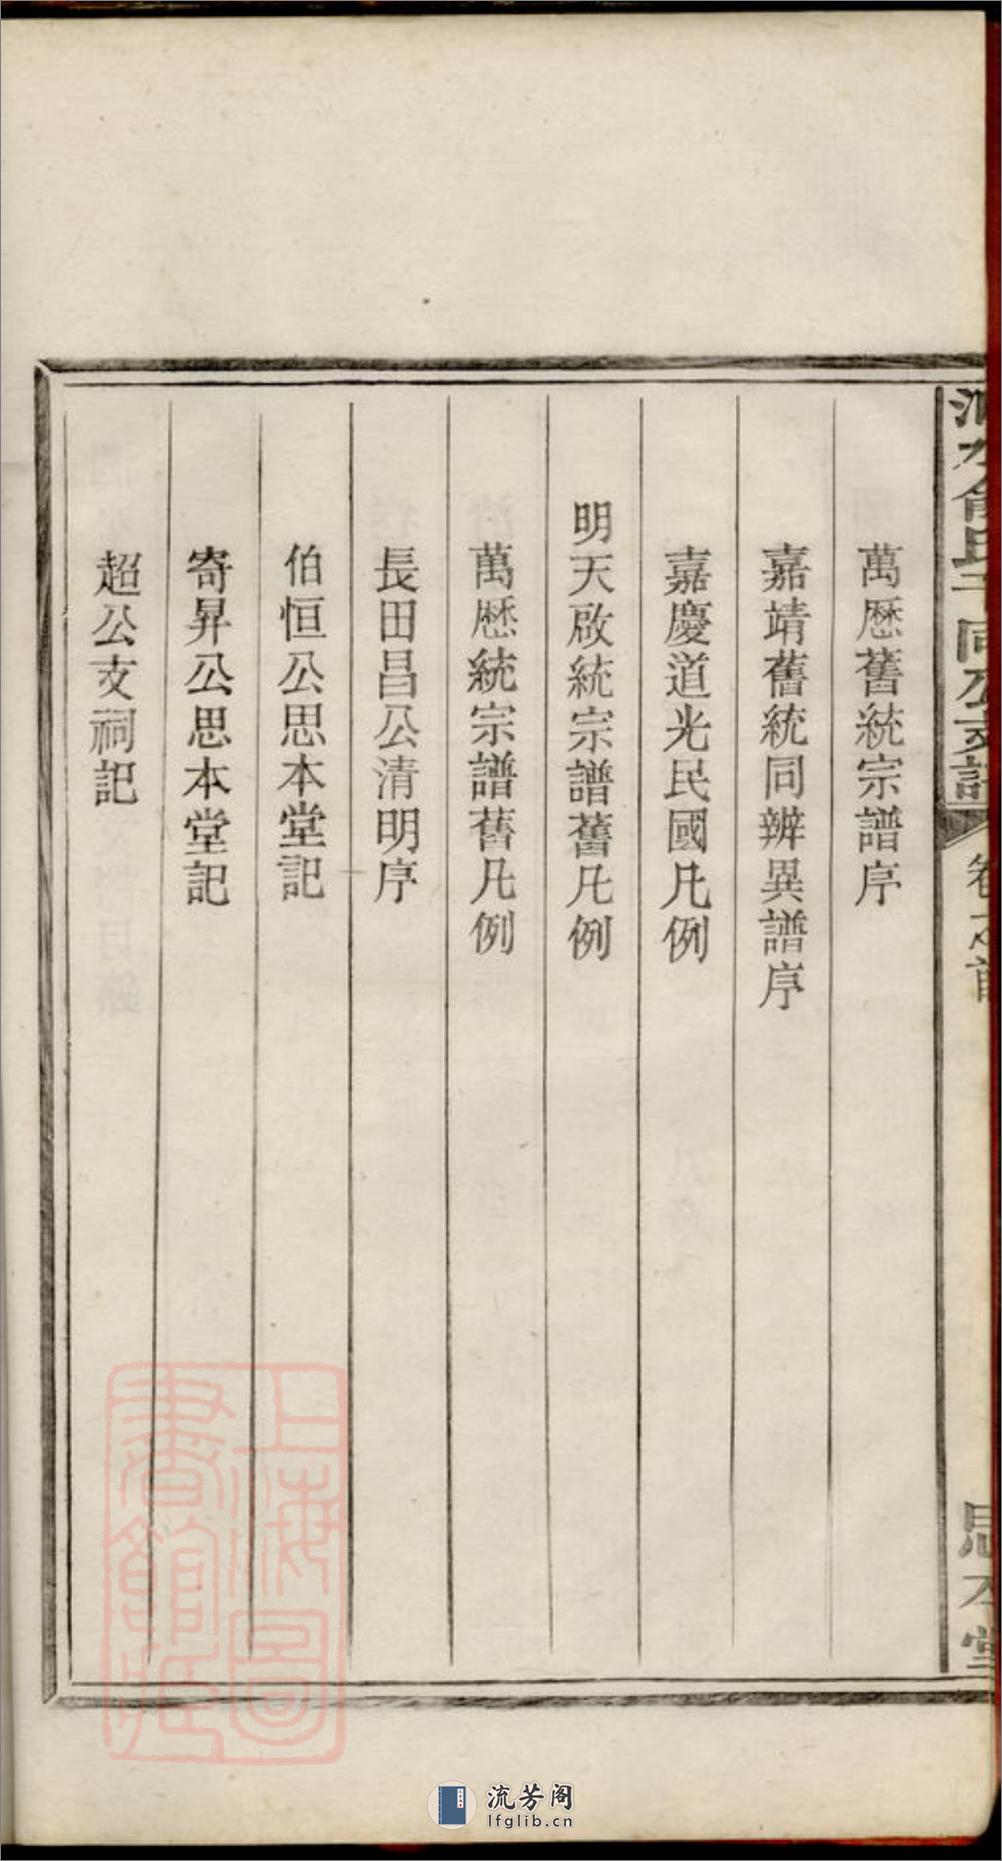 俞氏干同公支譜
卷之首
思本堂
萬歷舊統宗譜序
嘉靖舊統同辨異譜序
嘉慶道光民國凡例
明天啟統宗譜舊凡例
萬歷統宗譜舊凡例
長田昌公清明序
伯恒公思本堂記
寄昇公思本堂記
超公支祠記
上海圖書館藏
流芳阁
lfglib.cn